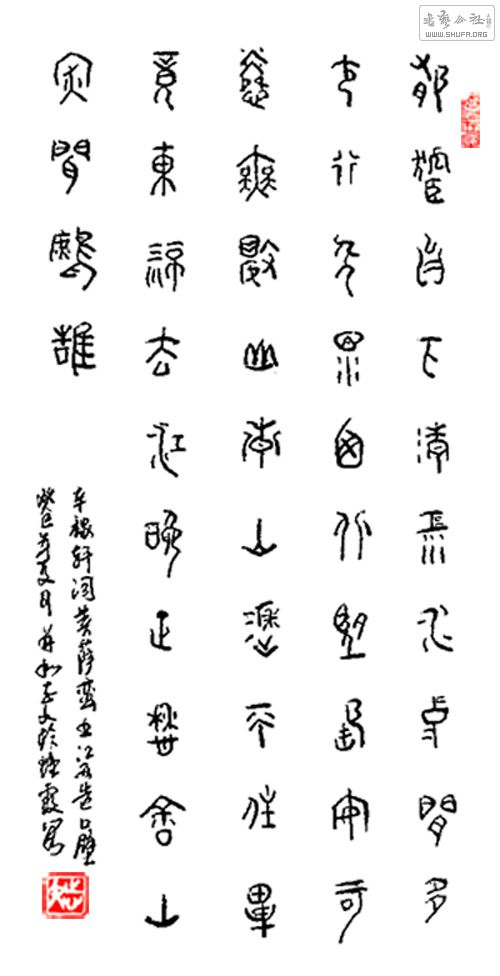 郁孤臺下清江水中間多
少行人淚西北望長安可
憐無數山青山遮不住畢
竟東流去江晚正愁余山
深聞鷓鴣
辛稼軒詞菩薩蠻書江西造口壁
癸巳年夏月
書藝公社
WWW.SHUFA.ORG